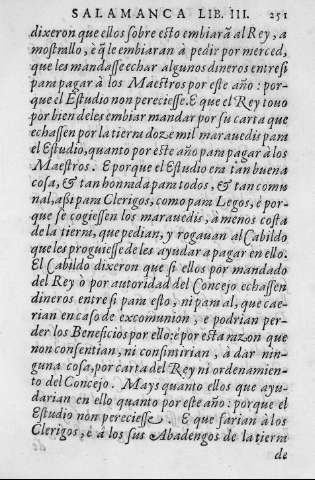 SALAMANCA LIB. III. 251
dixeron que ellos sobre esto embiarã al Rey, a
mostrallo, è q̃ le embiaran à pedir por merced,
que les mandasse echar algunos dineros entre si
para pagar à los Maestros por este año : por-
que el Estudio non pereciesse. E que el Rey tovo
por bien de les embiar mandar por su carta que
echassen por la tierra doze mil maravedis para
el Estudio, quanto por este año para pagar à los
Maestros. E porque el Estudio era tan buena
cosa, & tan honrrada para todos, & tan comu
nal, assi para Clerigos, como para Legos, è por-
que se cogiessen los maravedis, à menos costa
de la tierra, que pedian, y rogavan al Cabildo
que les proguiesse de les ayudar a pagar en ello.
El Cabildo dixeron que si ellos por mandado
del Rey ò por autoridad del Concejo echassen
dineros entre si para esto, ni para al, que cae-
rian en caso de excomunion, e podrian per-
der los Beneficios por ello: è por esta razon que
non consentian, ni consintirian, à dar nin-
guna cosa, por carta del Rey ni ordenamien-
to del Concejo. Mays quanto ellos que ayu-
darian en ello quanto por este año: porque el
Estudio non pereciesse. E que farian à los
Clerigos, e à los sus Abadengos de la tierra
de